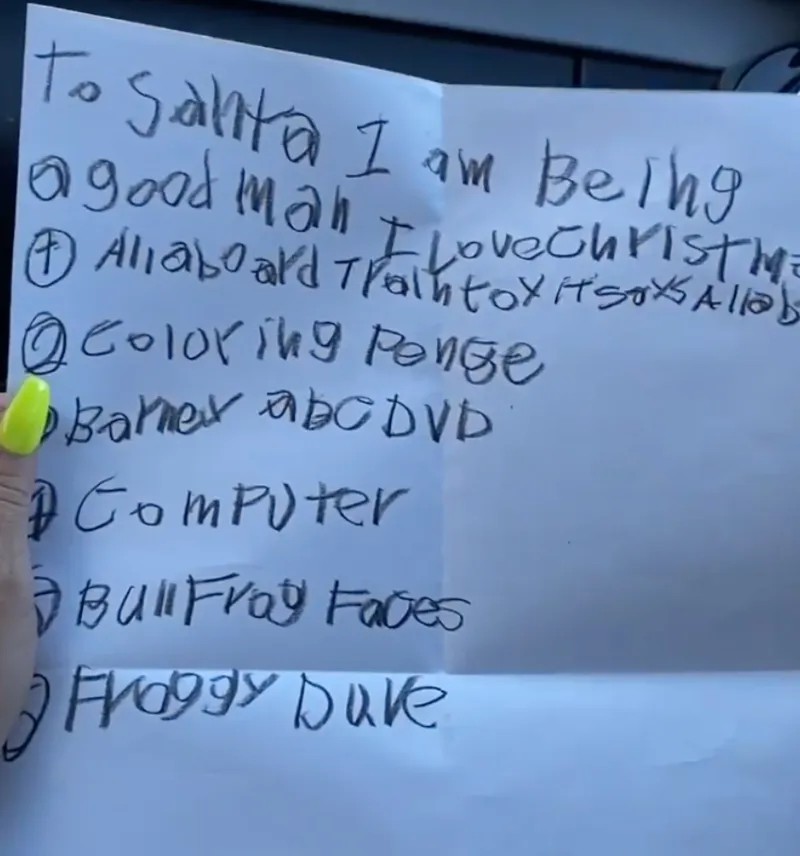 To Santa I am Being
a good man I Love Christm
① All aboard Train toy it says All ab
② Coloring Ponge
Barney abc DVD
Computer
Bullfrog Faces
Froggy Duke